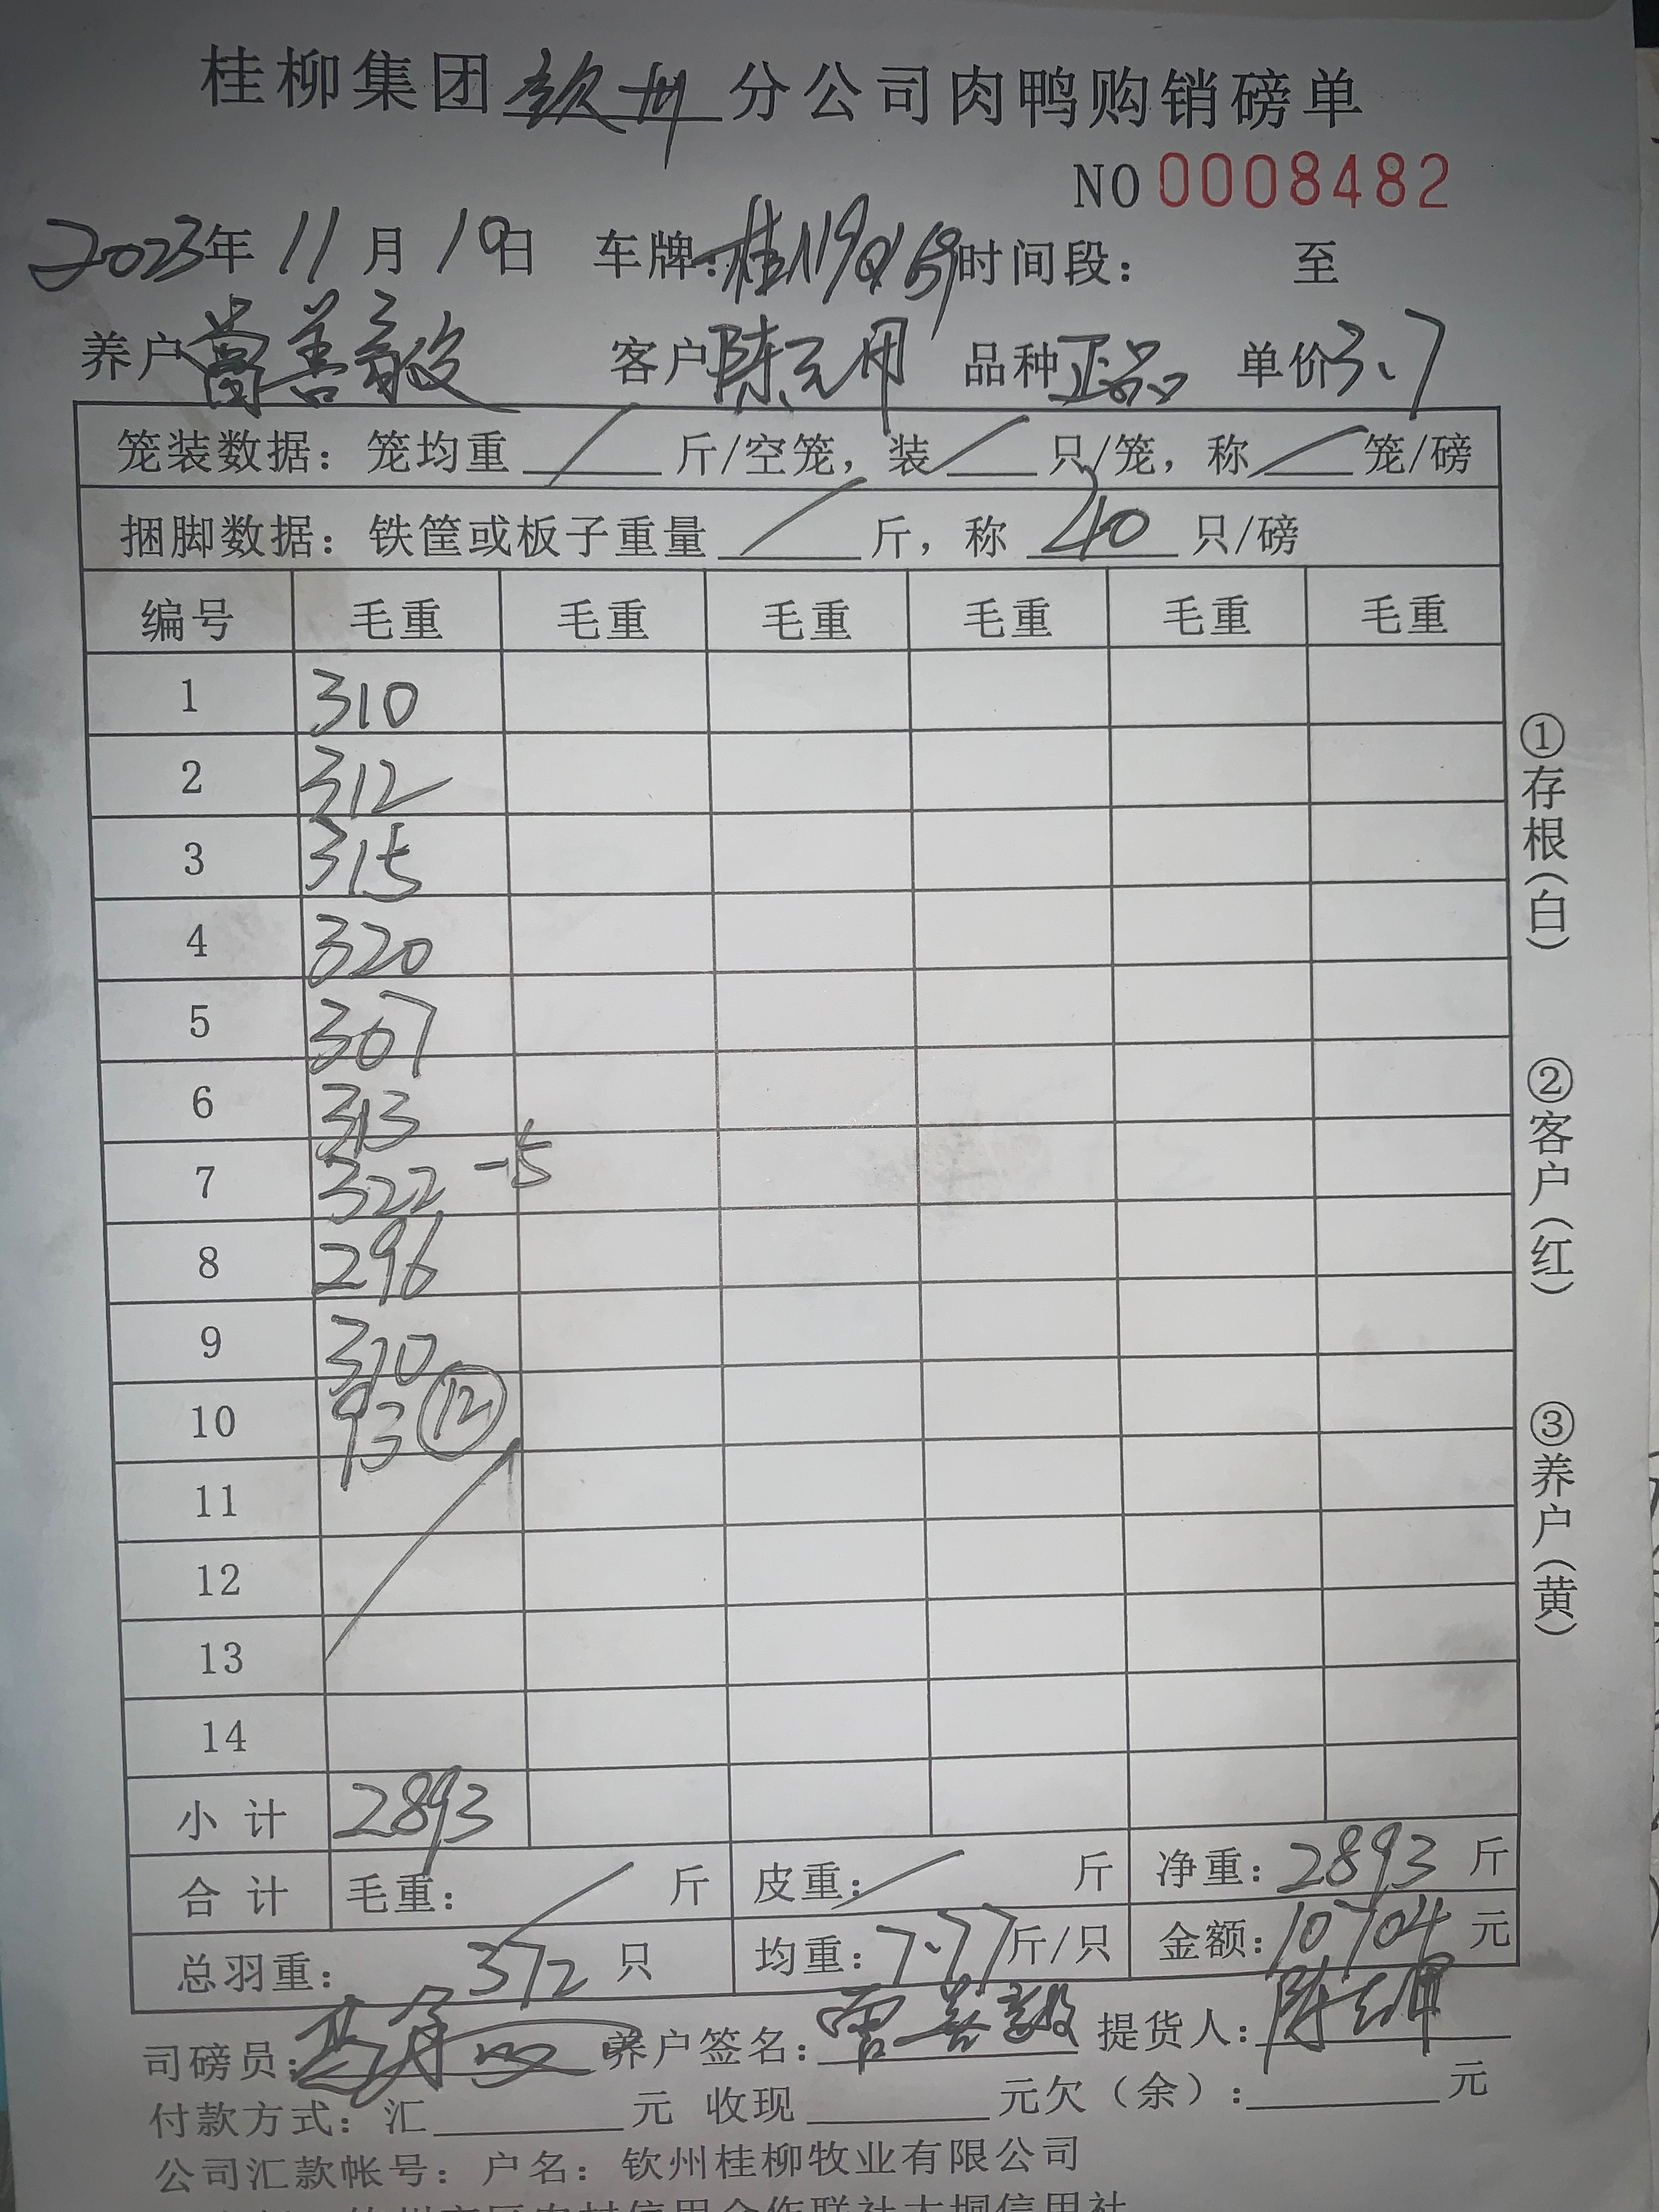 桂柳集团钦州分公司肉鸭购销磅单
NO 0008482
2023年11月10日 车牌:桂N19Q 时间段: 至
养户曾善毅 客户陈元 品种正品 单价3.7
笼装数据:笼均重 / 斤/空笼,装 / 只/笼,称 / 笼/磅
捆脚数据:铁筐或板子重量 / 斤,称 40 只/磅
编号 毛重 毛重 毛重 毛重 毛重 毛重
1 310
2 312
3 315
4 320
5 307
6 313
7 322 -5
8 296
9 310
10 93 ⑫
11
12
13
14
小计 2893
合计 毛重: / 斤 皮重: / 斤 净重:2893 斤
总羽重: 372 只 均重:7.77斤/只 金额:10704 元
司磅员: 养户签名:曾善毅 提货人:陈
付款方式:汇 元 收现 元欠(余): 元
公司汇款帐号:户名:钦州桂柳牧业有限公司
①存根(白)
②客户(红)
③养户(黄)